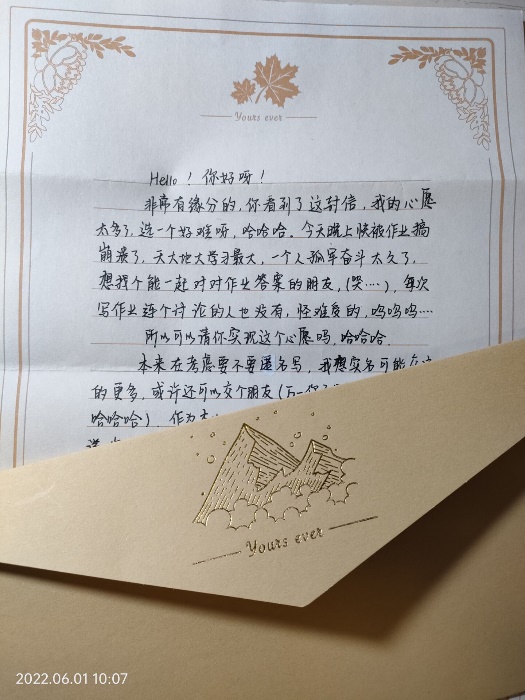 Yours ever
Hello！你好呀！
非常有缘分的，你看到了这封信，我的心愿
太多了，选一个好难呀，哈哈哈。今天晚上快被作业搞
崩溃了，天大地大学习最大，一个人孤军奋斗太久了，
想找个能一起对对作业答案的朋友，(哭……)，每次
写作业连个讨论的人也没有，怪难受的，呜呜呜……
所以可以请你实现这个心愿吗，哈哈哈．
本来在考虑要不要匿名写，我想实名可能
的更多，或许还可以交个朋友（万一你
哈哈哈） 作为
Yours ever
2022.06.01 10:07